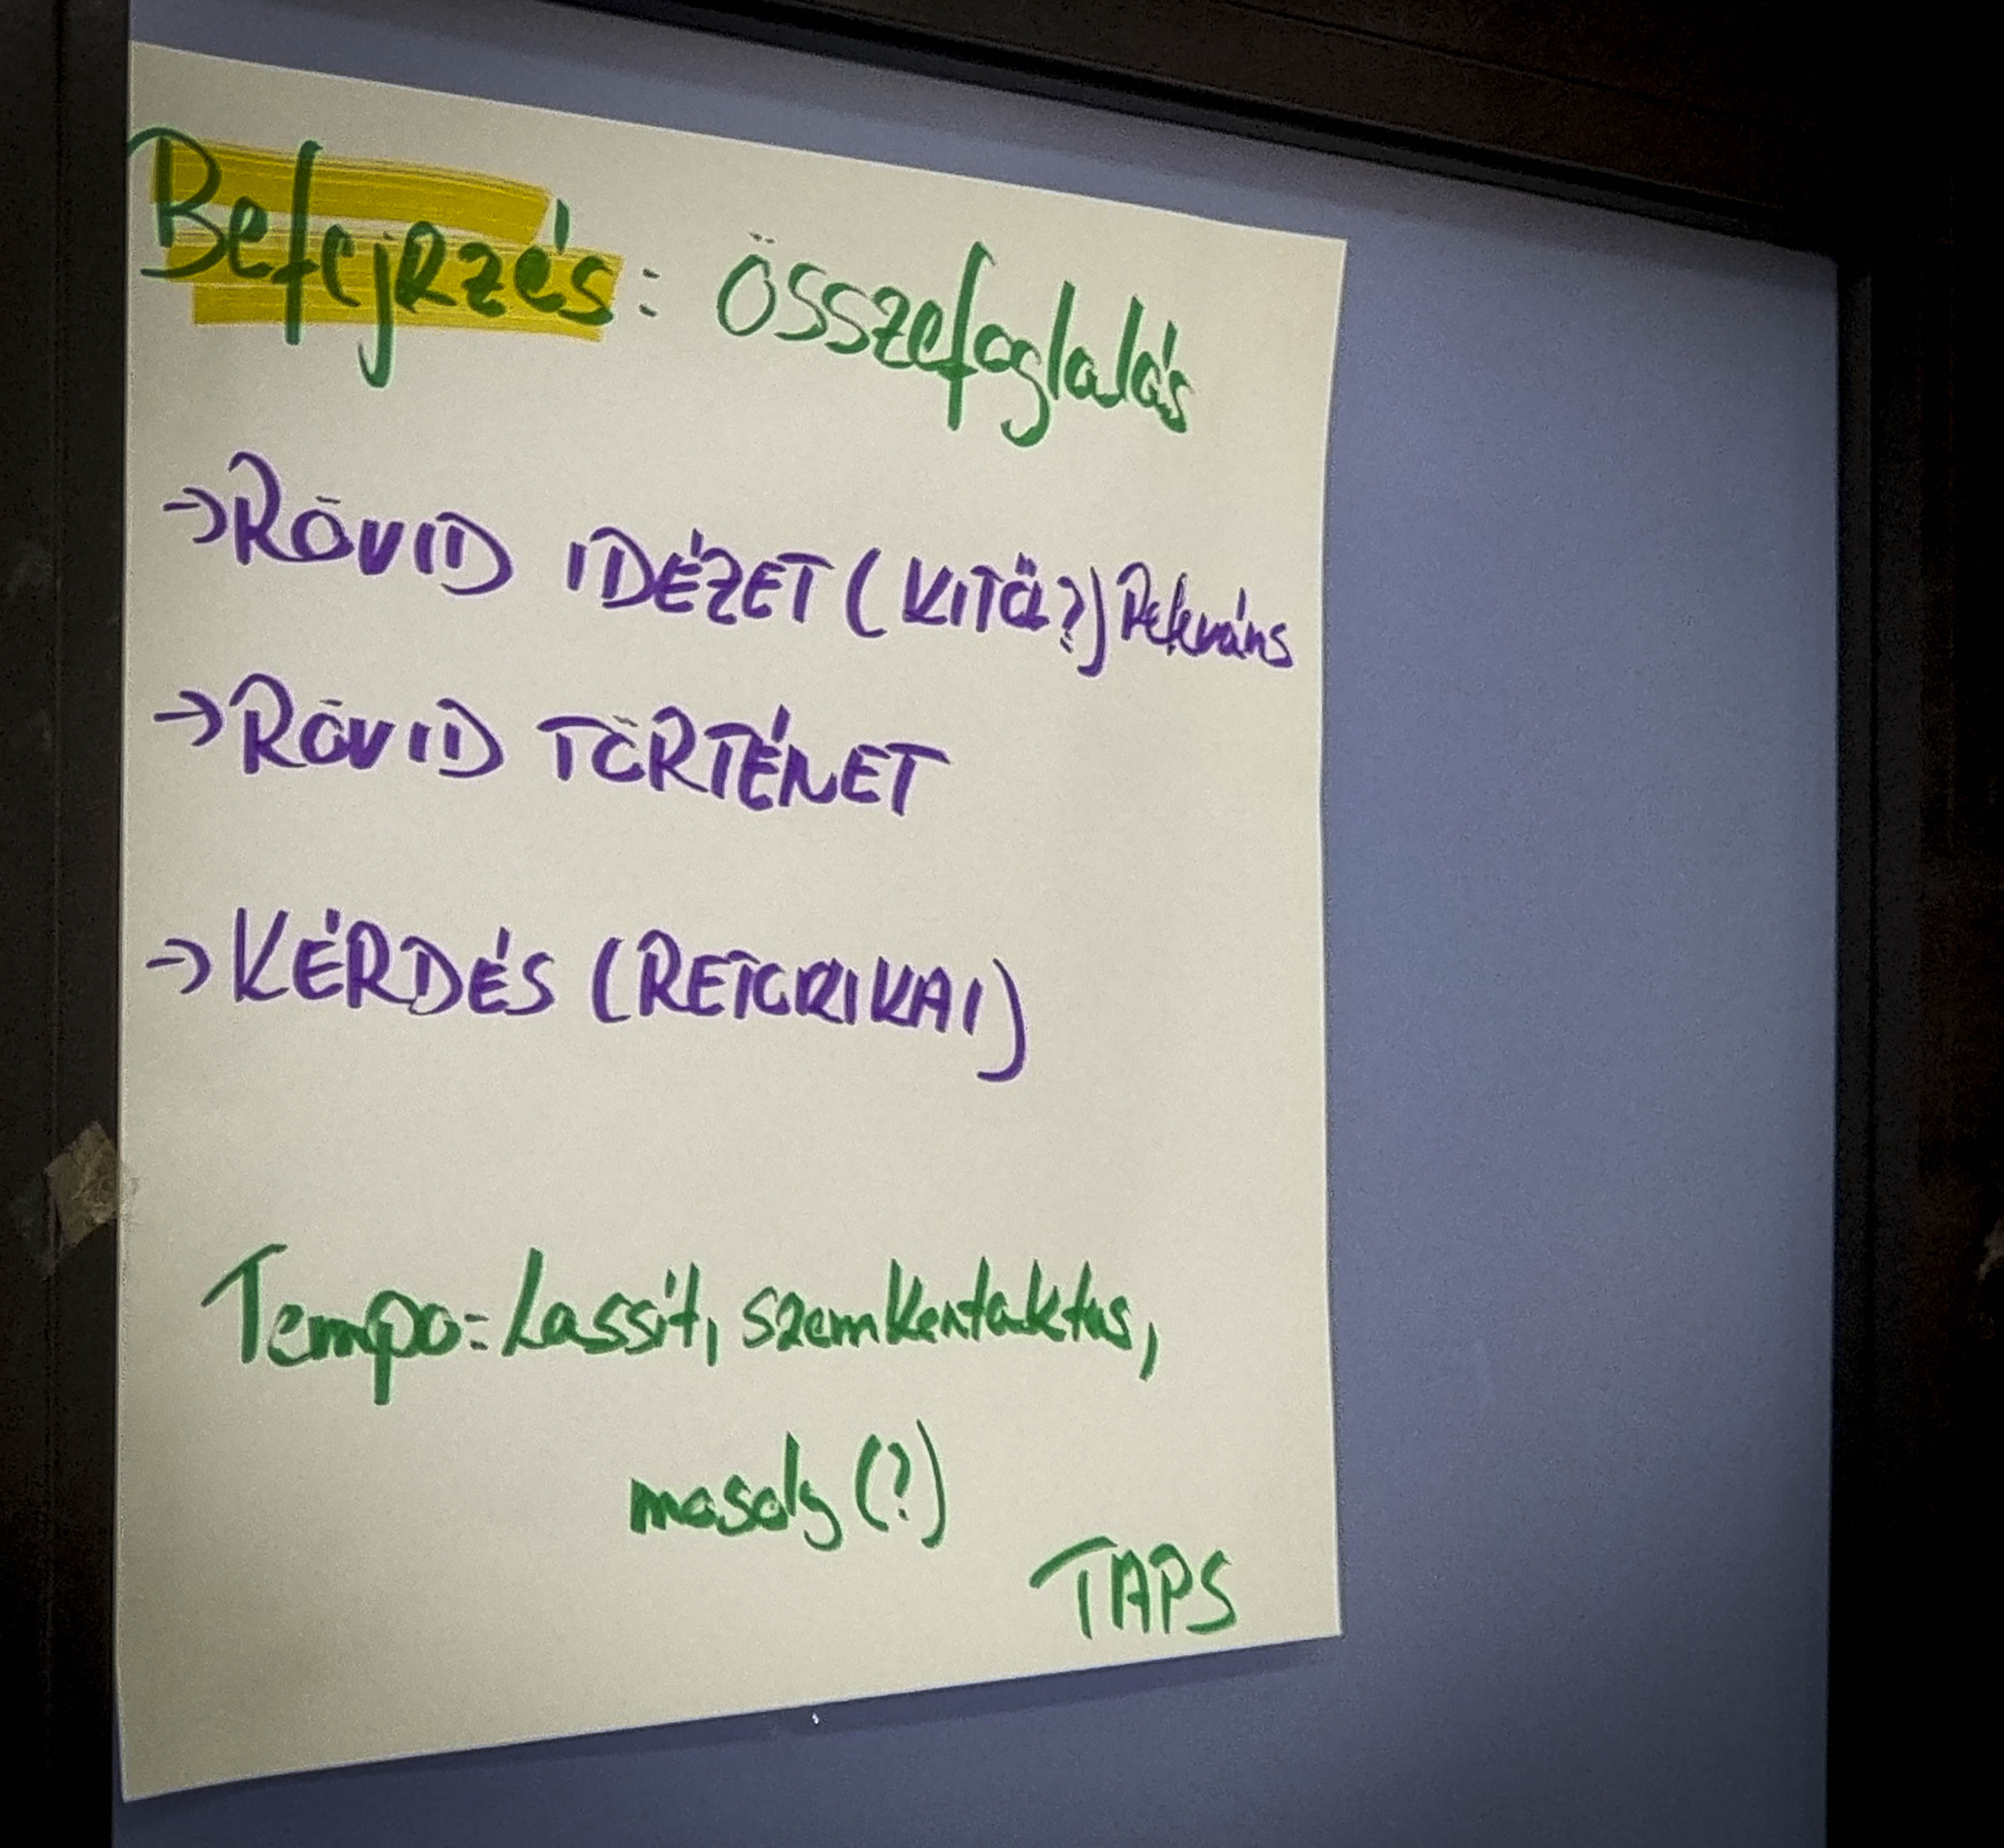 Befejezés: összefoglalás
→ RÖVID IDÉZET (KITŐL?) Releváns
→ RÖVID TÖRTÉNET
→ KÉRDÉS (RETORIKAI)
Tempo: Lassít, szemkontaktus,
mosoly (?)
TAPS